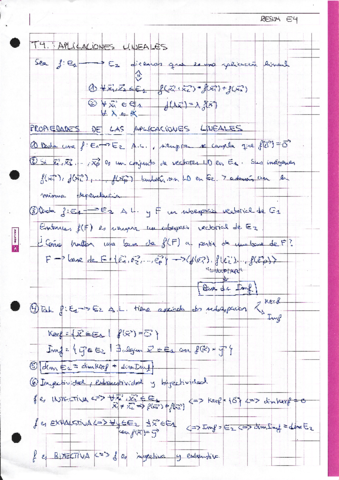 RESUM E4
T4. APLICACIONES LINEALES
Sea f: E1 → E2 diremos que es una aplicación lineal
⇕
① ∀ x⃗1, x⃗2 ∈ E1 f(x⃗1+x⃗2) = f(x⃗1)+f(x⃗2)
② ∀ x⃗1 ∈ E1 f(λx⃗) = λ f(x⃗)
∀ λ ∈ K
PROPIEDADES DE LAS APLICACIONES LINEALES
① Dada una f: E1 → E2 A.L., siempre se cumple que f(0⃗) = 0⃗
② Si x⃗1, x⃗2, ..., x⃗p es un conjunto de vectores LD en E1. Sus imágenes
f(x⃗1), f(x⃗2), ..., f(x⃗p) también son LD en E2 y además con la
misma dependencia.
③ Dada f: E1 → E2 A.L. y F un subespacio vectorial de E1
Entonces f(F) es un subespacio vectorial de E2
¿Cómo hallar una base de f(F) a partir de una base de F?
F → base de F = {e⃗1, e⃗2, ..., e⃗p} → <f(e⃗1), f(e⃗2), ..., f(e⃗p)>
Base de Imf
④ f: E1 → E2 A.L. tiene asociado dos subespacios
Kerf
Imf
Kerf = {x⃗ ∈ E1 | f(x⃗) = 0⃗}
Imf = {y⃗ ∈ E2 | ∃ algun x⃗ ∈ E1 con f(x⃗) = y⃗}
⑤ dim E1 = dim Kerf + dim Imf
⑥ Inyectividad, exhaustividad y biyectividad
f es INYECTIVA <=> ∀ x⃗1, x⃗2 ∈ E1 <=> Kerf = {0⃗} <=> dim Kerf = 0
x⃗1 ≠ x⃗2 => f(x⃗1) ≠ f(x⃗2)
f es EXHAUSTIVA <=> ∀ y⃗ ∈ E2 ∃ x⃗ ∈ E1 <=> Imf = E2 <=> dim Imf = dim E2
con f(x⃗) = y⃗
f es BIYECTIVA <=> f es inyectiva y exhaustiva